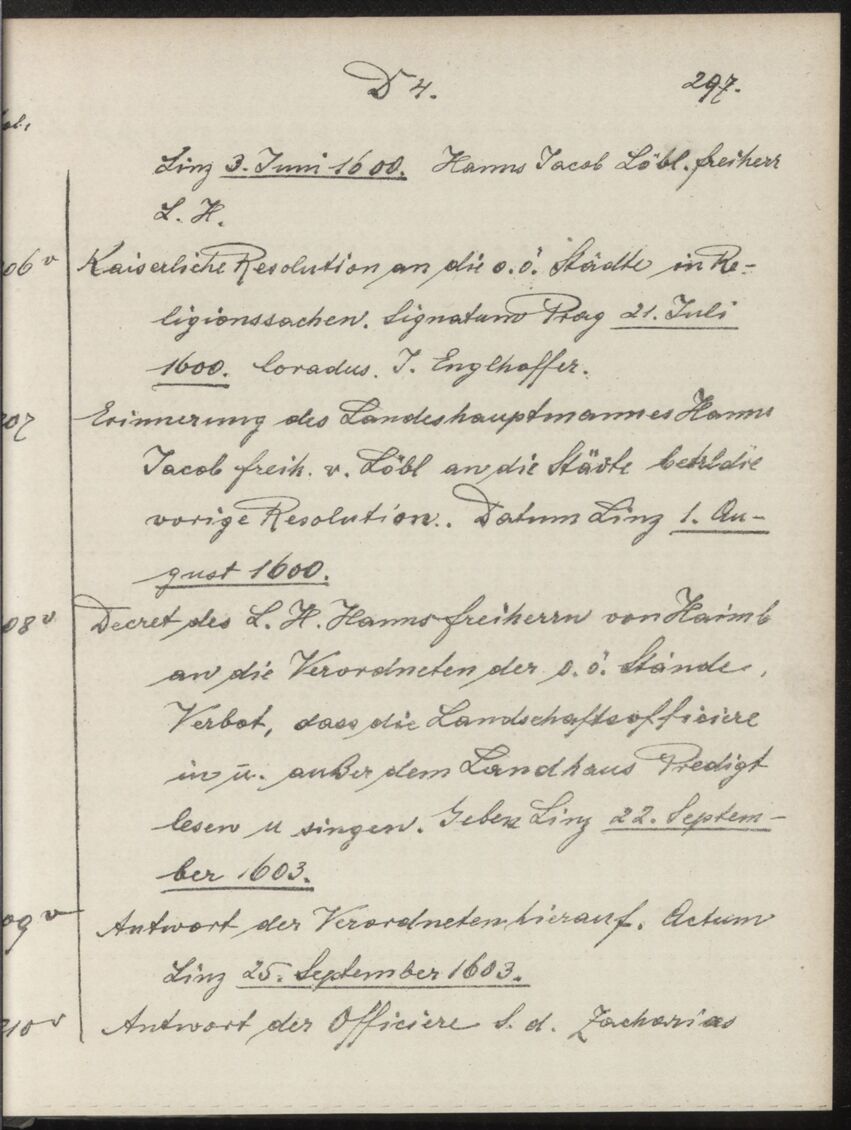 D 4. 297.
fol.
Linz 3. Juni 1600. Hanns Jacob Löbl. freiherr
L. H.
06v Kaiserliche Resolution an die o.ö. Städte in Re-
ligionssachen. Signatum Prag 21. Juli
1600. Coradus. J. Englhoffer.
207 Erinnerung des Landeshauptmannes Hanns
Jacob freih. v. Löbl an die Städte betr. die
vorige Resolution. Datum Linz 1. Au-
gust 1600.
08v Decret des L. H. Hanns freiherrn von Haimb
an die Verordneten der o.ö. Stände,
Verbot, dass die Landschaftsofficiere
in u. außer dem Landhaus Predigt
lesen u singen. Geben Linz 22. Septem-
ber 1603.
09v Antwort der Verordneten hierauf. Actum
Linz 25. September 1603.
210v Antwort der Officiere s. d. Zacharias